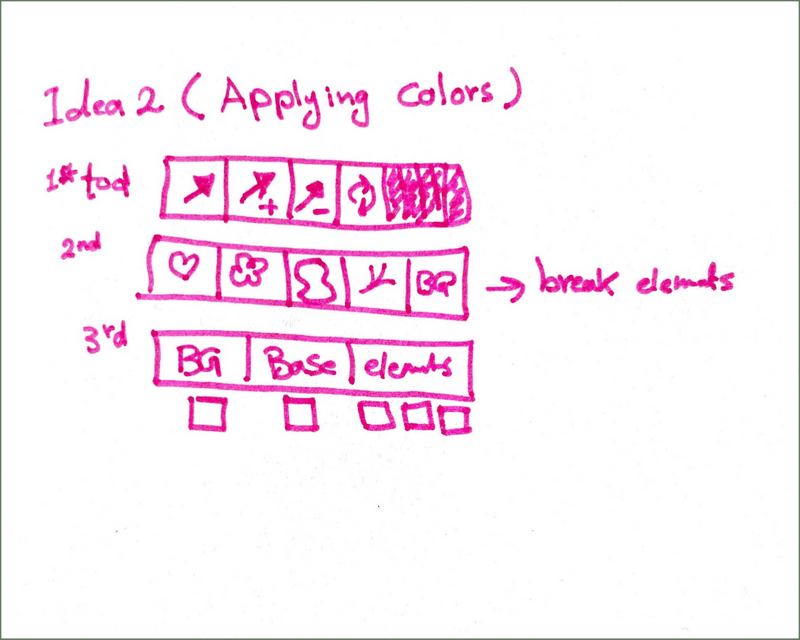 Idea 2 (Applying Colors)
1st tool
+ -
2nd
BG → break elemnts
3rd
BG Base elemnts